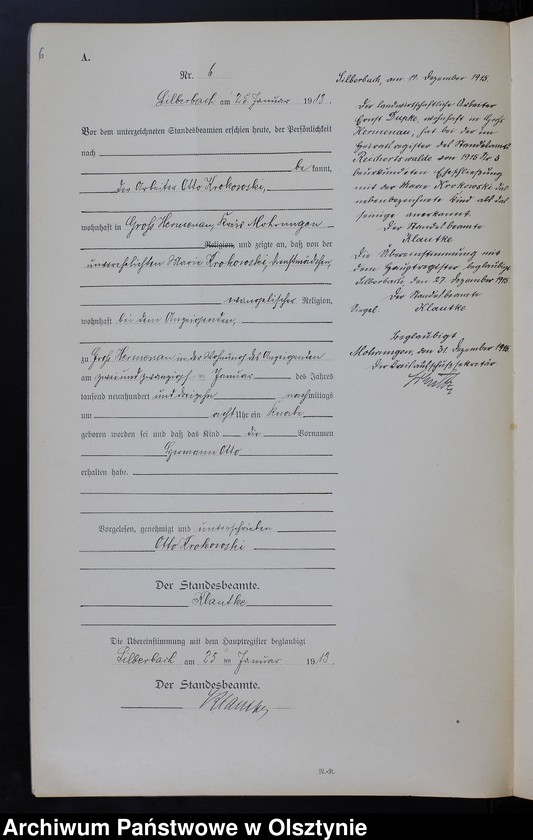 6
A.
Nr. 6
Silberbach am 25 Januar 1913.
Vor dem unterzeichneten Standesbeamten erschien heute, der Persönlichkeit
nach
be kannt,
der Arbeiter Otto Krokowski,
wohnhaft in Groß Hermenau, Kreis Mohrungen
Religion, und zeigte an, daß von der
unverehelichten Marie Krokowski, Dienstmädchen,
evangelischer Religion,
wohnhaft bei dem Anzeigenden,
zu Groß Hermenau in der Wohnung des Anzeigenden
am zwei und zwanzigsten Januar des Jahres
tausend neunhundert und dreizehn nachmittags
um acht Uhr ein Knabe
geboren worden sei und daß das Kind die Vornamen
Hermann Otto
erhalten habe.
Vorgelesen, genehmigt und unterschrieben
Otto Krokowski
Der Standesbeamte.
Klautke
Die Übereinstimmung mit dem Hauptregister beglaubigt
Silberbach am 25 Januar 1913.
Der Standesbeamte.
Klautke
N.-R.
Silberbach, am 11. Dezember 1915
Der landwirtschaftliche Arbeiter
Ernst wohnhaft in Groß
Hermenau, hat bei der im
Heiratsregister des Standesamts
Reichertswalde von 1915 Nr 3
beurkundeten Eheschließung
mit der Marie Krokowski das
nebenbezeichnete Kind als das
seinige anerkannt.
Der Standesbeamte
Klautke
Die Übereinstimmung mit
dem Hauptregister beglaubigt
Silberbach, den 27. Dezember 1915
Der Standesbeamte
Siegel Klautke
Beglaubigt
Mohrungen, den 31. Dezember 1915
Der Kreisausschußsekretär
Archiwum Państwowe w Olsztynie